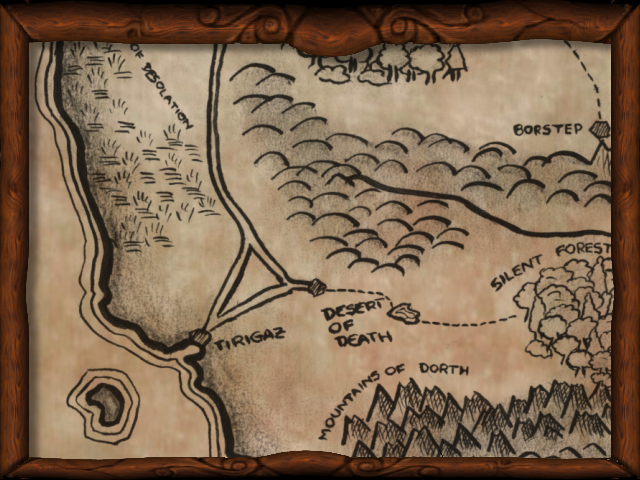 OF DESOLATION
BORSTEP
SILENT FOREST
DESERT
OF
DEATH
TIRIGAZ
MOUNTAINS OF DORTH